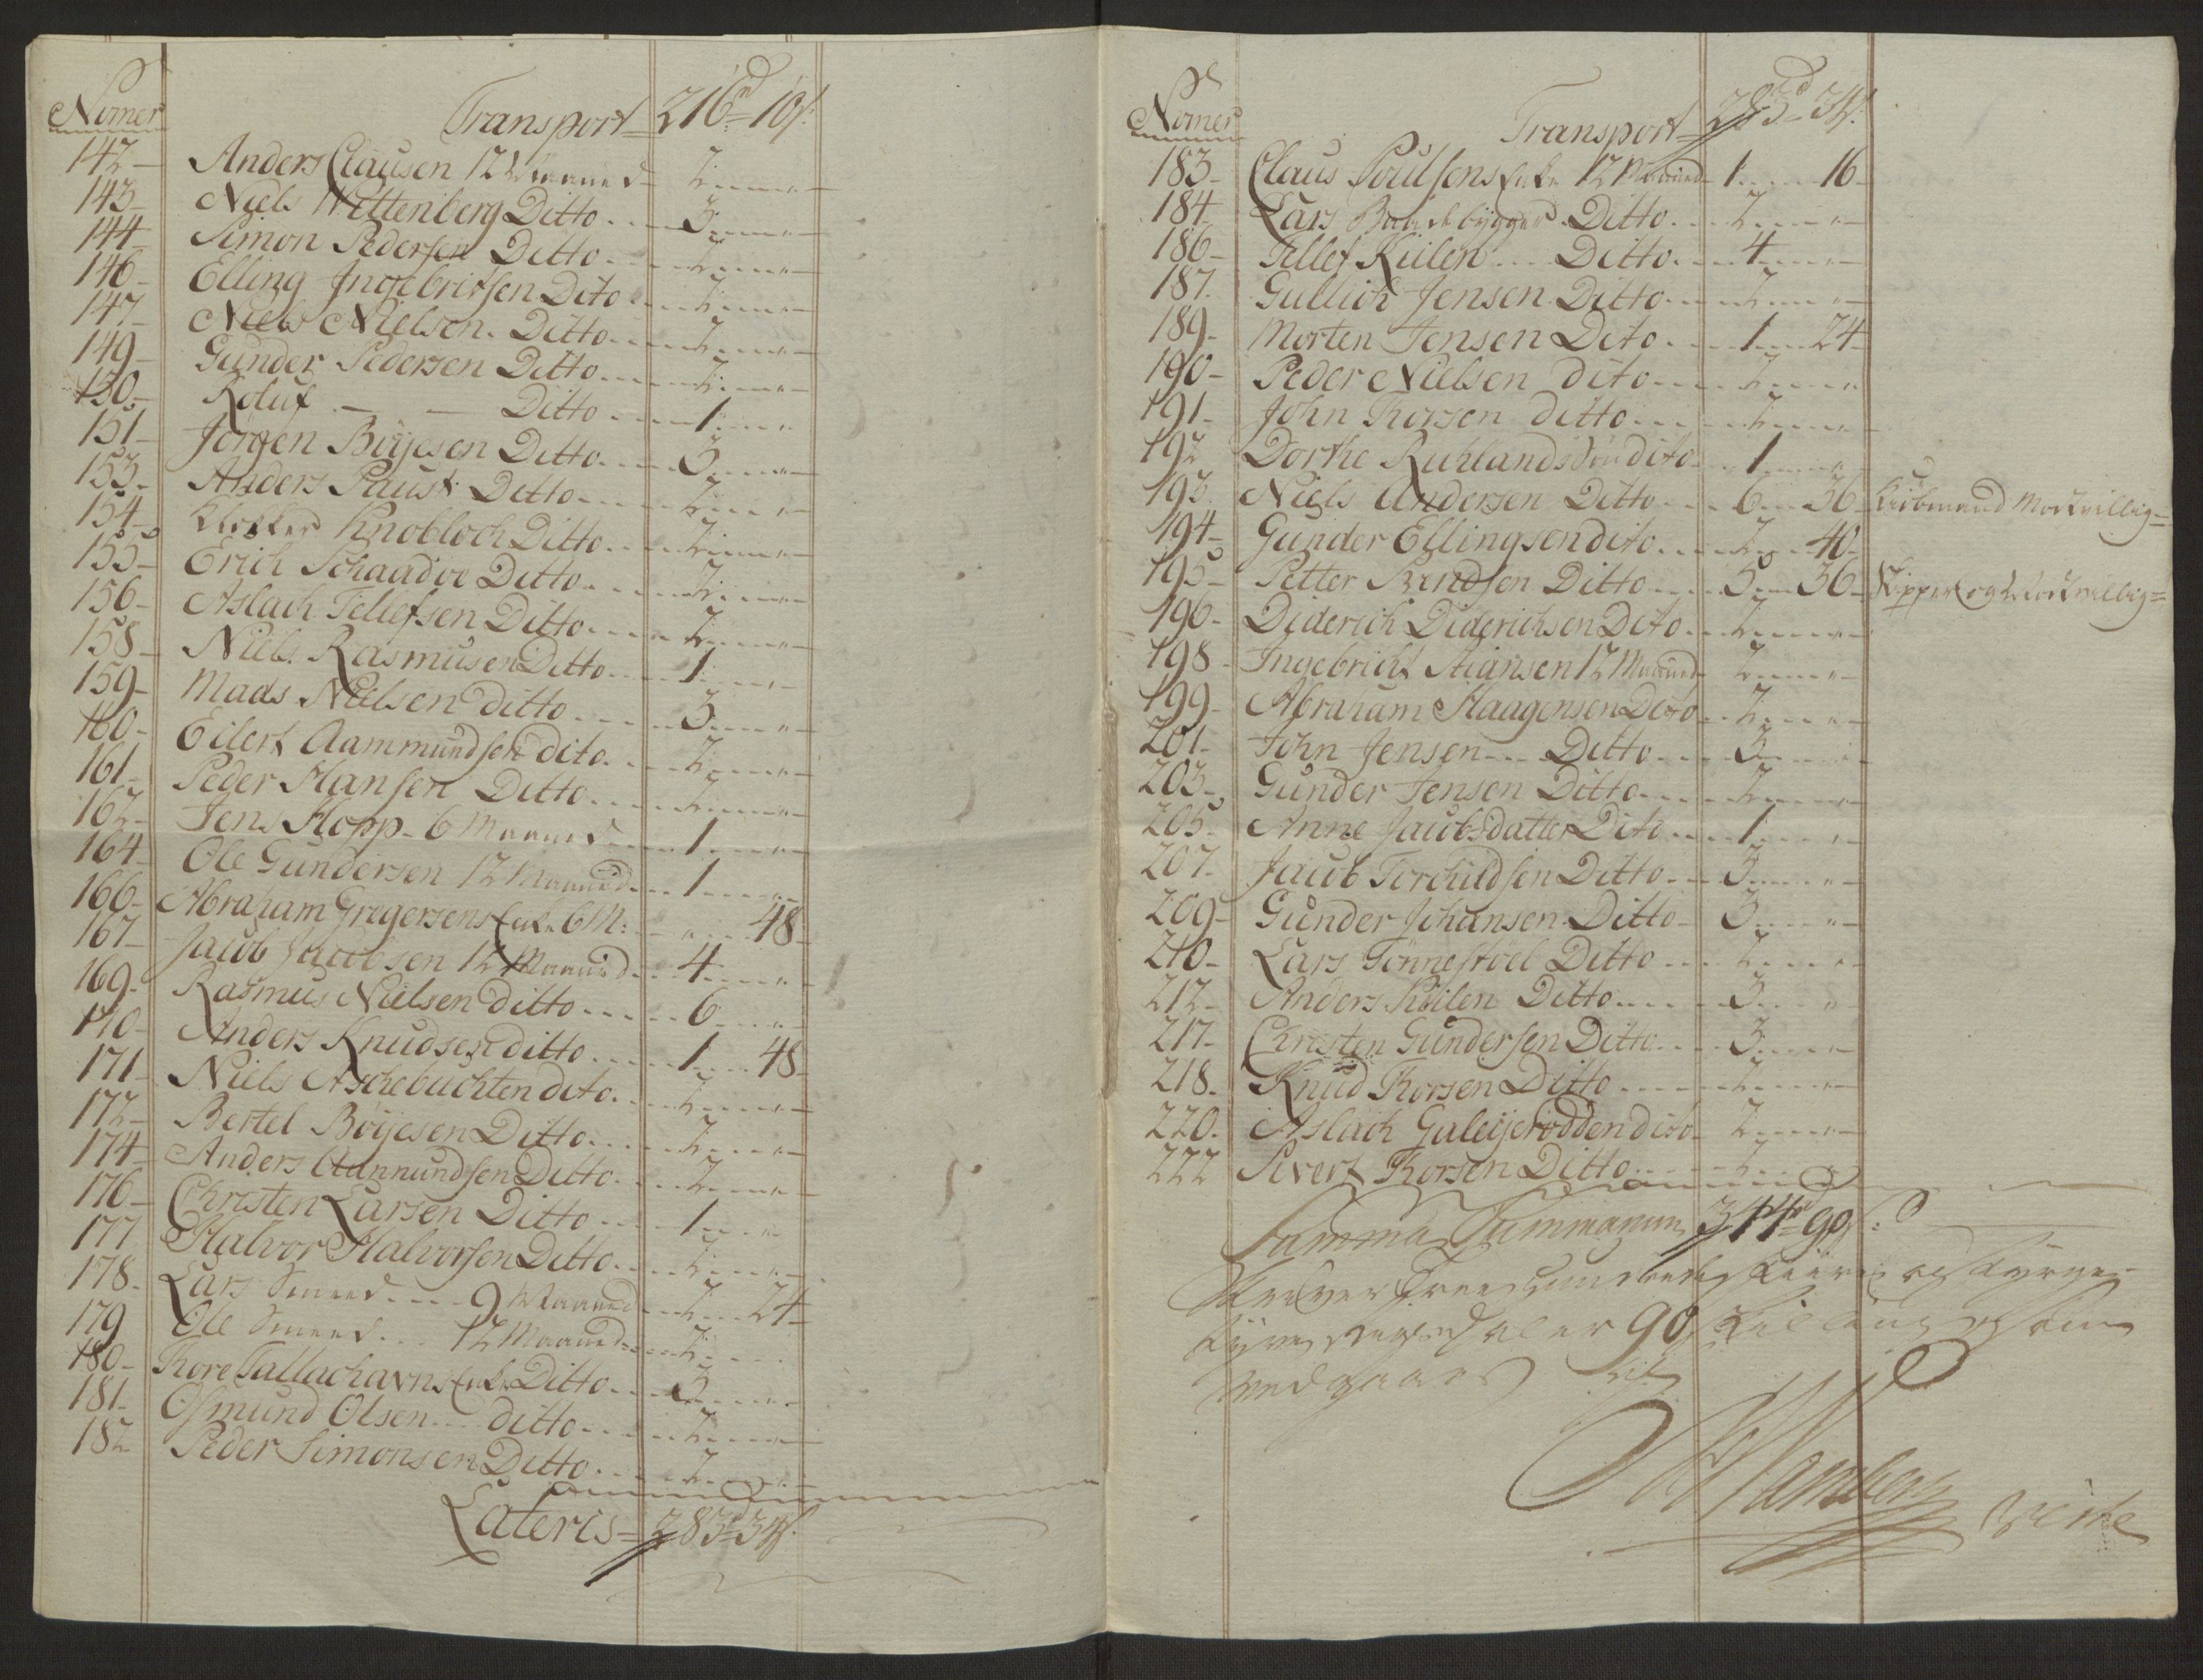 Nomer Transport 216 rd 10 s.
142 Anders Clausen 12 Maaned 2
143 Niels Wittenberg Ditto 3
144 Simon Pedersen Ditto 2
146 Elling Ingebritsen Dito 2
147 Niels Nielsen Ditto 2
149 Gunder Pedersen Ditto 2
150 Roluf — — Ditto 1
151 Jörgen Böyesen Ditto 3
153 Anders Paust Ditto 2
154 Klocker Knobloch Ditto 2
155 Erich Schaadoe Ditto 2
156 Aslach Tellefsen Ditto 2
158 Niels Rasmusen Ditto 1
159 Mads Nielsen ditto 3
160 Eilert Aammundsen dito 2
161 Peder Hansen Ditto 2
162 Jens Hopp 6 Maaned 1
164 Ole Gundersen 12 Maaned 1
166 Abraham Gregersens Enke 6 M: 48
167 Jacob Jacobsen 12 Maaned 4
169 Rasmus Nielsen ditto 6
170 Anders Knudsen ditto 1 48
171 Niels Aschebuchten dito 2
172 Bertel Böyesen Ditto 2
174 Anders Aanmundsen Ditto 2
176 Christen Larsen Ditto 1
177 Halvor Halvorsen Ditto 2
178 Lars Smed 9 Maaned 2 24
179 Ole Smed 12 Maaned 2
180 Thore Tallachavns Enke Ditto 3
181 Osmund Olsen ditto 2
182 Peder Simonsen Ditto 2
Lateris 283 rd 34 s.
Nomer Transport 283 rd 34 s.
183 Claus Poulsens Enke 12 Maaned 1 16
184 Lars Baadebygger Ditto 2
186 Tellef Kiilen Ditto 4
187 Gullich Jensen Ditto 2
189 Morten Jensen Dito 1 24
190 Peder Nielsen dito 2
191 John Thorsen ditto 2
192 Dorthe Ruhlands dito 1
193 Niels Andersen Ditto 6 36 Kiöbmand
194 Gunder Ellingsen dito 2 40
195 Petter Berndsen Ditto 5 36 Skipper
196 Diderich Diderichsen Dito 2
198 Ingebricht Stiansen 12 Maaned 2
199 Abraham Haagensen Dito 2
201 John Jensen Ditto 3
203 Gunder Jensen Ditto 2
205 Anne Jacobsdatter Dito 1
207 Jacob Torchildsen Ditto 3
209 Gunder Johansen Ditto 3
210 Lars Tönnestöel Ditto 2
212 Anders Kiilen Ditto 3
217 Christen Gundersen Ditto 3
218 Knud Thorsen Ditto 2
220 Aslach Galeijerodden dito 2
222 Sivert Thorsen Ditto 2
Summa Summarum 344 rd 90 s:
90